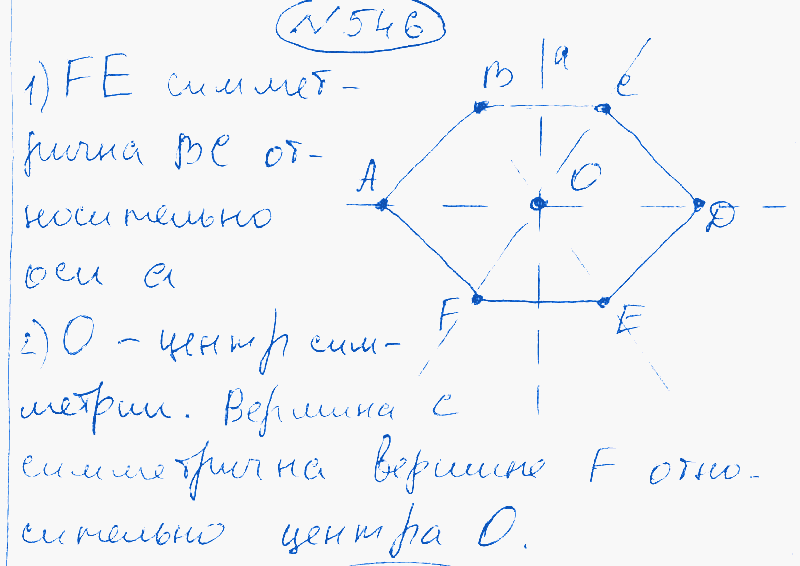 N 546
1) FE симмет-
рична BC от-
носительно
оси a
2) O - центр сим-
метрии. Вершина C
симметрична вершине F отно-
сительно центра O.
B a C
A O D
F E